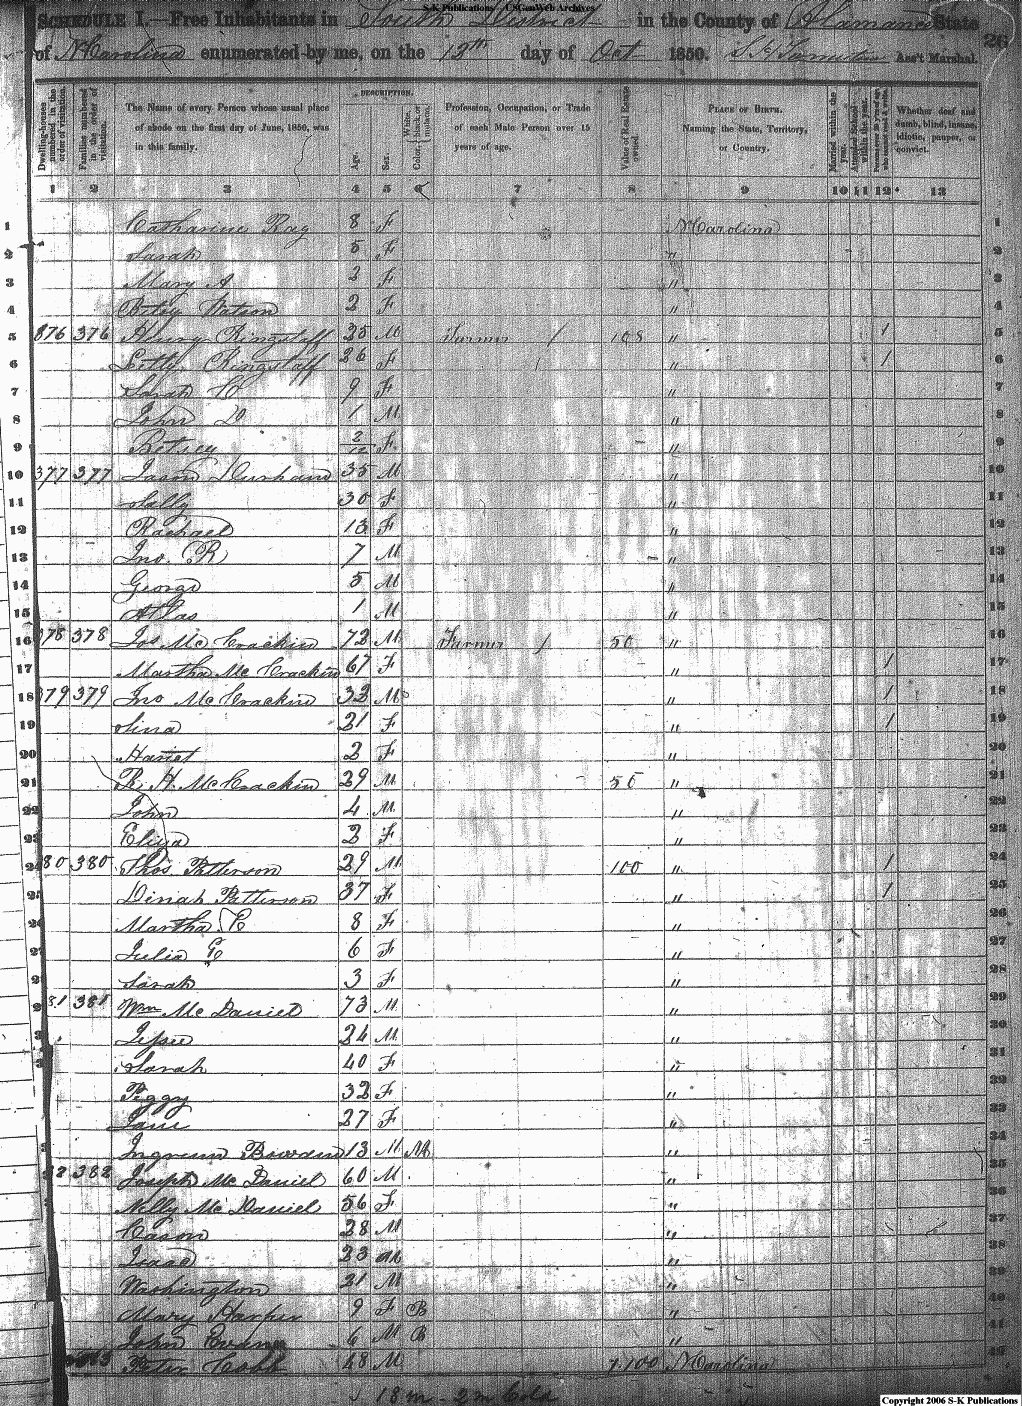 S-K Publications - USGenWeb Archives
SCHEDULE I.—Free Inhabitants in South District in the County of Alamance State
of N Carolina enumerated by me, on the 12th day of Oct 1850. Ass't Marshal. 26
Dwelling-houses numbered in the order of visitation.
Families numbered in the order of visitation.
The Name of every Person whose usual place of abode on the first day of June, 1850, was in this family.
DESCRIPTION.
Age.
Sex.
Color, White, black, or mulatto.
Profession, Occupation, or Trade of each Male Person over 15 years of age.
Value of Real Estate owned
PLACE OF BIRTH. Naming the State, Territory, or Country.
Married within the year.
Attended School within the year.
Persons over 20 y'rs of age who cannot read & write.
Whether deaf and dumb, blind, insane, idiotic, pauper, or convict.
1 2 3 4 5 6 7 8 9 10 11 12 13
1 Catharine Ray 8 F N Carolina 1
2 Sarah 5 F " 2
3 Mary A 2 F " 3
4 Betsy Watson 2 F " 4
5 376 376 Henry Ringstaff 25 M Farmer / 108 " 1 5
6 Letty Ringstaff 26 F " 1 6
7 Sarah C 9 F " 7
8 John D 1 M " 8
9 Betsey 2/12 F " 9
10 377 377 Jason Durham 35 M " 10
11 Sally 30 F " 11
12 Rachael 13 F " 12
13 Jno. R 7 M " 13
14 George 5 M " 14
15 Atlas 1 M " 15
16 378 378 Jos McCrackin 72 M Farmer / 50 " 16
17 Martha McCrackin 67 F " 1 17
18 379 379 Jno McCrackin 32 M " 1 18
19 Sina 21 F " 1 19
20 Hariet 2 F " 20
21 R. H. McCrackin 29 M 50 " 21
22 John 4 M " 22
23 Eliza 2 F " 23
24 80 380 Thos. Patterson 29 M 100 " 1 24
25 Dinah Patterson 37 F " 1 25
26 Martha E 8 F " 26
27 Julia E 6 F " 27
2 Sarah 3 F " 28
2 81 381 Wm McDaniel 73 M " 29
3 Jessee 24 M " 30
3 Sarah 40 F " 31
Peggy 32 F " 32
Jane 27 F " 33
3 Ingram Bowden 13 M M " 34
82 382 Joseph McDaniel 60 M " 35
Nelly McDaniel 56 F " 36
Cason 28 M " 37
Isaac 23 M " 38
Washington 21 M " 39
Mary Harper 9 F B " 40
John Evans 6 M B " 41
Peter Cobb 48 M 1,100 N Carolina 42
18 m - 2 m Cold
Copyright 2006 S-K Publications